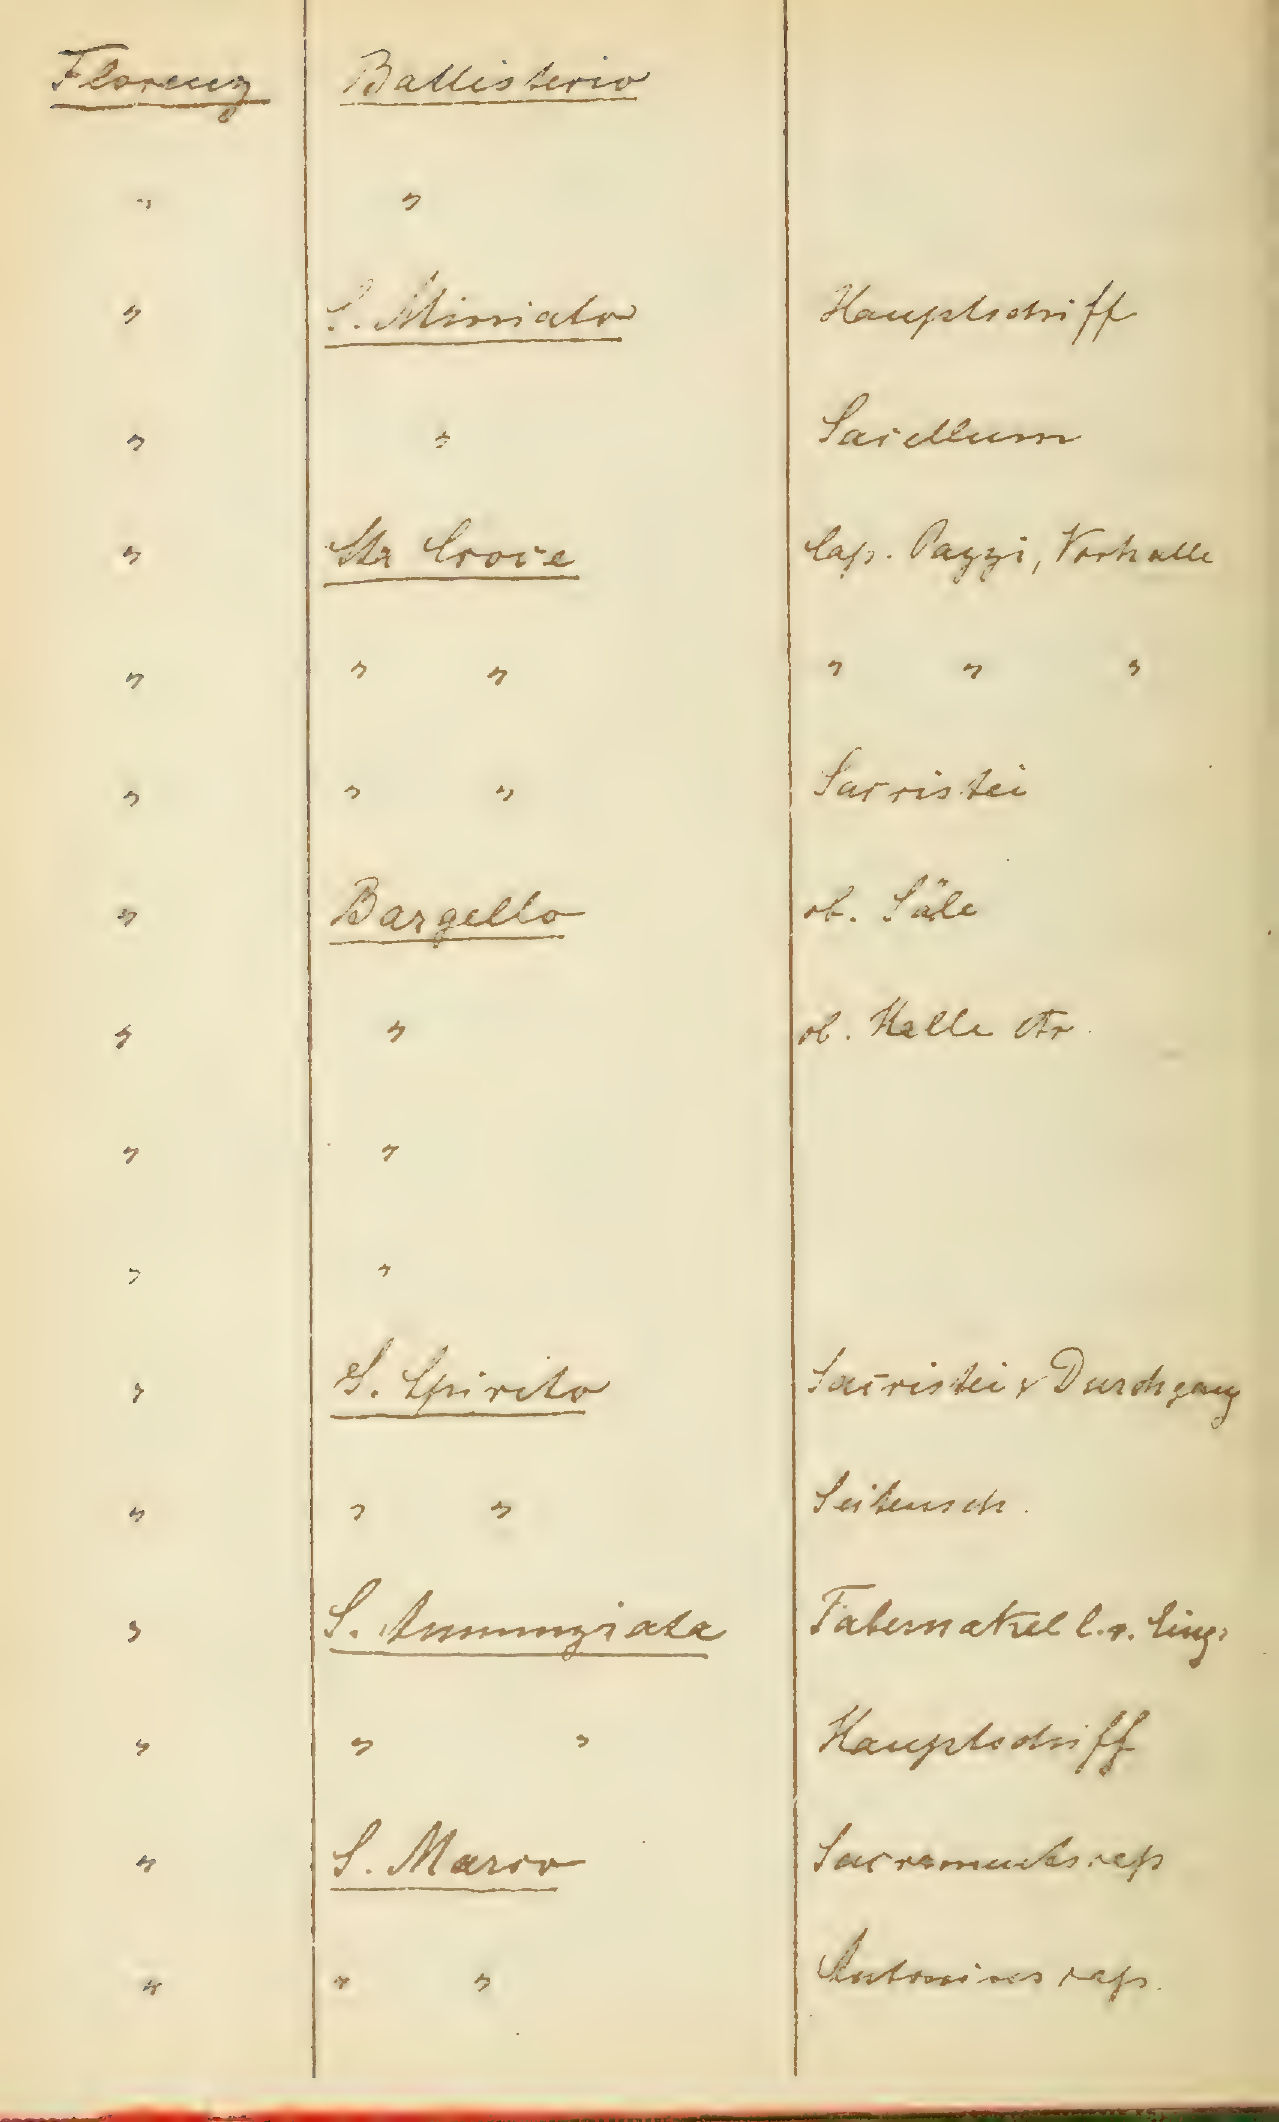 Florenz Battisterio
" "
" S. Miniato Hauptschiff
" " Sacellum
" Sta Croce Cap. Pazzi, Vorhalle
" " " " " "
" " " Sacristei
" Bargello ob. Säle
" " ob. Halle
" "
" "
" S. Spirito Sacristei & Durchgang
" " " Seitensch.
" S. Annunziata Tabernakel l. v. Eing.
" " " Hauptschiff
" S. Marco Sacramentscap
" " " Antoninscap.